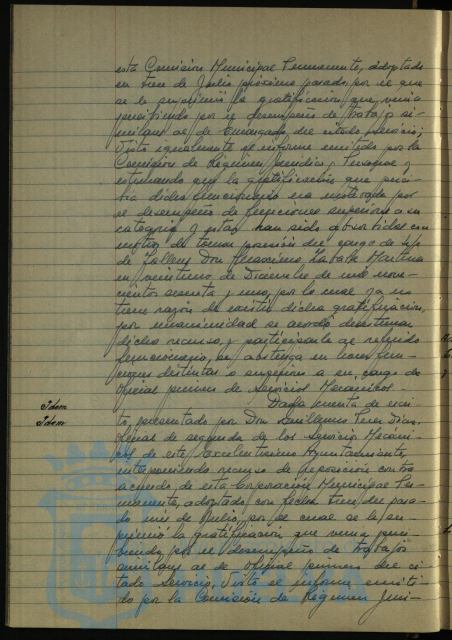 esta Comisión Municipal Permanente, adoptado
en trece de Julio próximo pasado, por el que
se le suprimió la gratificación que venía
percibiendo por el desempeño de trabajos si-
milares al de Encargado del citado servicio;
Visto igualmente el informe emitido por la
Comisión de Régimen Jurídico y Personal y
estimando que la gratificación que perci-
bía dicho funcionario era motivada por
el desempeño de funciones superiores a su
categoría y estas han sido absorbidas con
motivo de tomar posesión del cargo de Jefe
de Talleres Don Maximino Zabala Martina
en veintiuno de Diciembre de mil nove-
cientos sesenta y uno, por lo cual ya no
tiene razón de existir dicha gratificación,
por unanimidad se acordó desestimar
dicho recurso, y participarle al referido
funcionario, se abstenga en hacer fun-
ciones distintas o superiores a su cargo de
Oficial primero de Servicios Mecánicos.
Idem
Idem
Dada cuenta de escri-
to presentado por Don Guillermo Perez Dias,
Oficial de segunda de los Servicios Mecáni-
cos de este Excelentísimo Ayuntamiento,
interponiendo recurso de reposición contra
acuerdo de esta Corporación Municipal Per-
manente, adoptado con fecha trece del pasa-
do mes de Julio, por el cual se le su-
primió la gratificación que venía perci-
biendo por el desempeño de trabajos
similares al de oficial primero del ci-
tado Servicio; Visto el informe emiti-
do por la Comisión de Régimen Jurí-